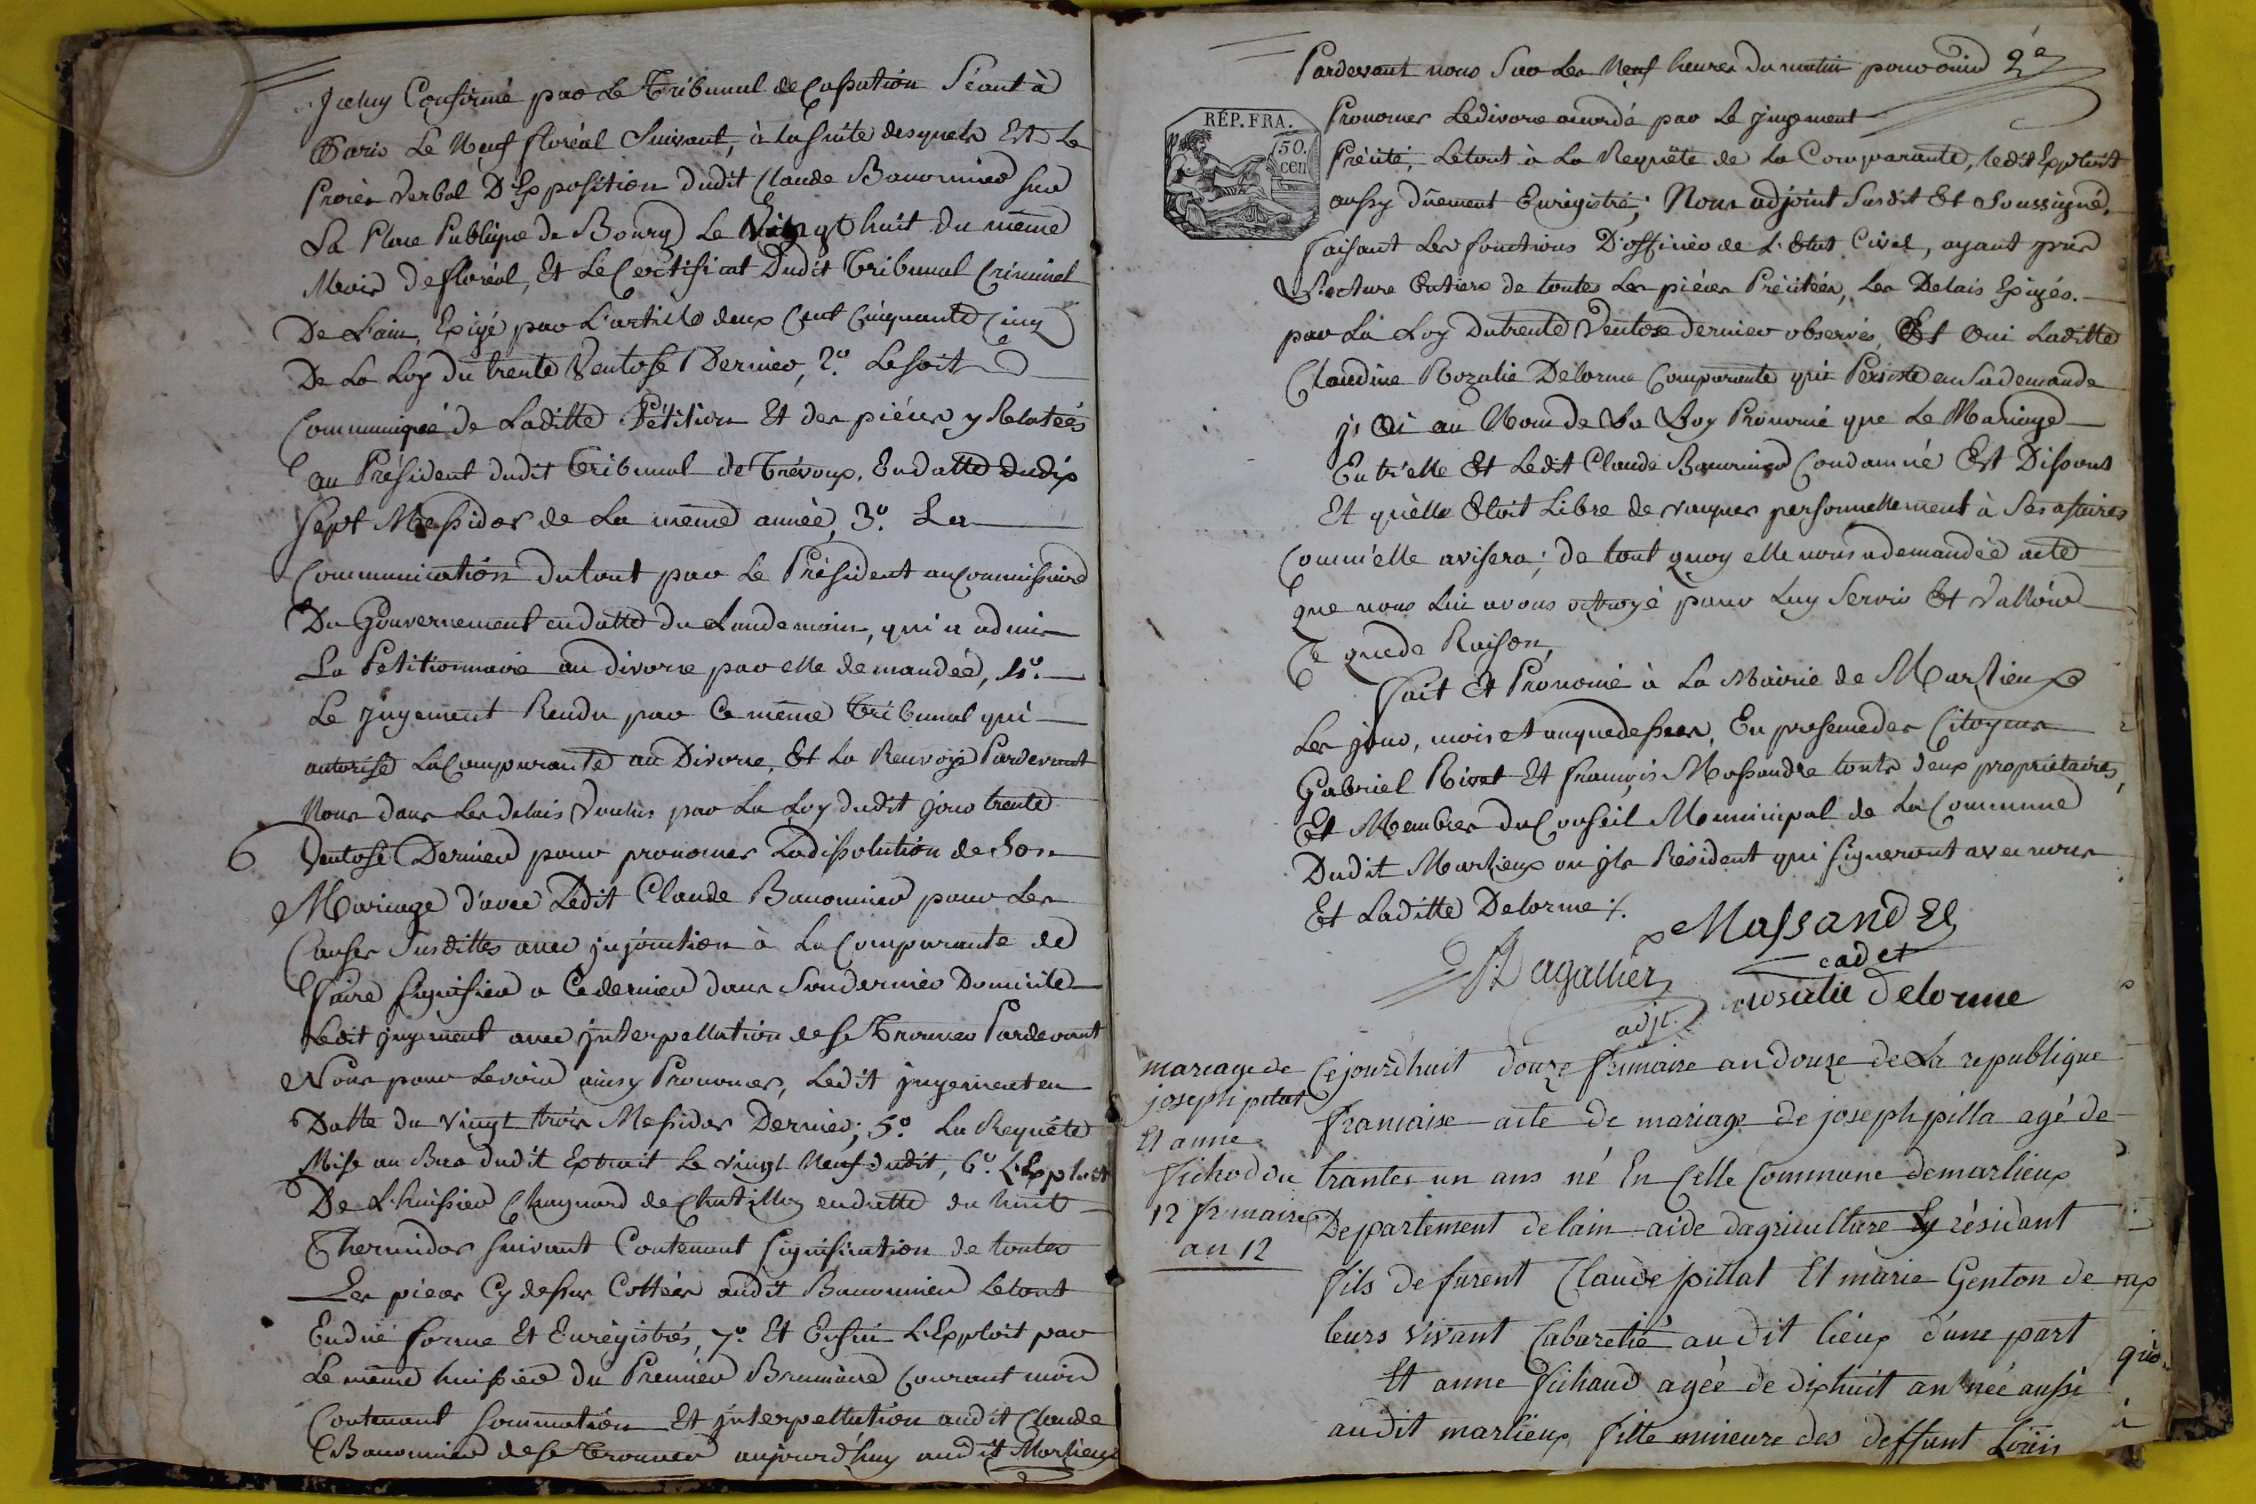 Iceluy Confirmé par Le Tribunal de Cassation Séant à
Paris Le Neuf floréal Suivant, à la suite desquels Est Le
Procès Verbal D'Exposition dudit Claude Bauonnier sur
La Place Publique de Bourg Le Vingt huit du même
Mois de floréal, Et Le Certificat Dudit Tribunal Criminel
De L'ain, Exigé par L'article deux Cent Cinquante Cinq
De La Loy du trente Ventose Dernier, 2.º Le soit
Communiqué de Laditte Pétition Et des pièces y Relatées
au Président dudit Tribunal de Trévoux, En datte du dix
Sept Messidor de La même année, 3.º La
Communication dutout par Le Président au Commissaire
Du Gouvernement en datte du Landemain, qui a admis
La Petitionnaire au divorce par elle demandée, 4.º
Le jugement Rendu par Ce même Tribunal qui
autorise La Comparante au Divorce, Et La Renvoye Pardevant
Nous dans Les delais Voulus par La Loy dudit jour trente
Ventose Dernier pour prononcer La dissolution de Son
Mariage d'avec Ledit Claude Bauonnier pour Les
Causes Susdittes avec jnjonction à La Comparante de
Faire signifier a Ce dernier dans Son dernier Domicile
Ledit jugement avec jnterpellation de se Trouver Pardevant
Nous pour Le voir ainsy Prononcer, Ledit jugement en
Datte du vingt trois Messidor Dernier; 5.º La Requête
Mise au Bas dudit Extrait Le vingt Neuf dudit, 6.º L'Exploit
De L'huissier Chaynard de Chatillon en datte du huit
Thermidor suivant Contenant signification de toutes
Les pieces Cy dessus Cottées audit Bauonnier Le tout
En due forme Et Enregistrés, 7.º Et Enfin L'Exploit par
Le même huissier du Premier Brumaire Courant mois
Contenant sommation Et jnterpellation audit Claude
Bauonnier de se trouver aujourd'huy audit Marlieux
2e
Pardevant nous Sur Les Neuf heures du matin pour ouir
RÉP. FRA.
50.
cen
Prononcer Le divorce accordé par Le jugement
Précité, Le tout à La Requête de La Comparante, ledit Exploit
aussy dûement Enregistré; Nous adjoint Susdit Et Soussigné,
Faisant Les fonctions D'officier de L'Etat Civil, ayant pris
Lecture Entiere de toutes Les pièces Précitées, Les Delais Exigés
par La Loy du trente Ventose dernier observés, Et Oui Laditte
Claudine Rozalie Delorme Comparante qui Persiste en Sa demande
j'Ai au Nom de La Loy Prononcé que Le Mariage
Entr'elle Et Ledit Claude Bauonnier Condamné Est Dissous
Et qu'elle Etoit Libre de vaquer personnellement à Ses afaires
Comm'elle avisera; de tout quoy elle nous a demandée acte
que nous Lui avons octroyé pour Luy Servir Et Valloir
Ce que de Raison,
Fait Et Prononcé à La Mairie de Marlieux
Les jour, mois et an que dessus, En presence des Citoyens
Gabriel Rivet Et François Massandre touts deux propriétaires,
Et Membres du Conseil Municipal de La Commune
Dudit Marlieux ou jls Résident qui signeront avec nous
Et Laditte Delorme ./.
Massandre
cadet
Dagallier
adjt.
rosalie delorme
mariage de
joseph pilat
Et anne
Fichod du
12 frimaire
an 12
Cejourdhuit douze frimaire an douze de La republique
francaise acte de mariage de joseph pilla agé de
trantes un ans né En Celle Commune de marlieux
Departement de lain aide dagriculture Ey résidant
fils de furent Claude pillat Et marie Genton de
leurs vivant Cabaretié audit lieux d'une part
Et anne Fichaud agéé de dixhuit an née aussi
audit marlieux fille mineure des deffunt Loüis